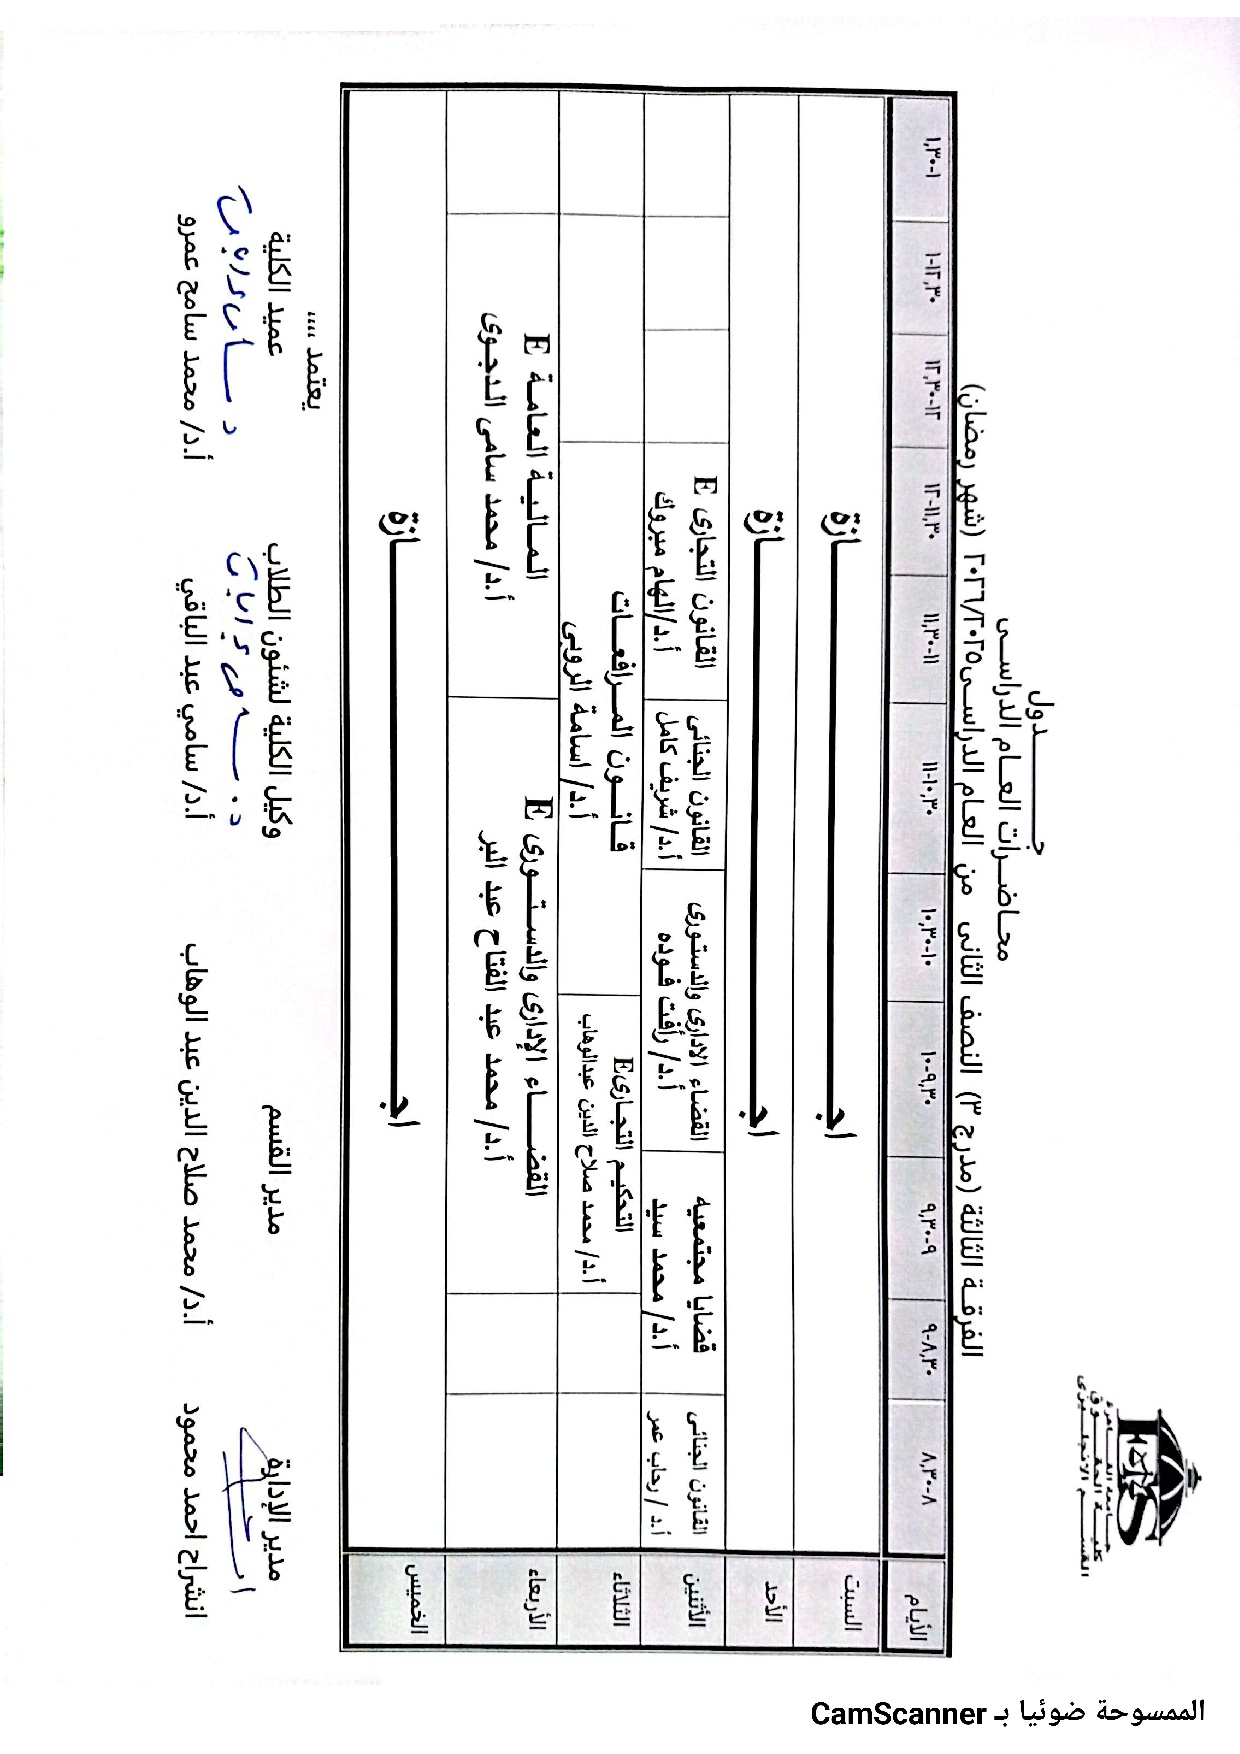 جامعة القاهرة
كلية الحقوق
القسم الانجليزى
جــــــدول
محاضرات العام الدراسى
الفرقة الثالثة (مدرج ٣) النصف الثانى من العام الدراسى ٢٠٢٦/٢٠٢٥ (شهر رمضان)
الأيام ٨-٨,٣٠ ٨,٣٠-٩ ٩-٩,٣٠ ٩,٣٠-١٠ ١٠-١٠,٣٠ ١٠,٣٠-١١ ١١-١١,٣٠ ١١,٣٠-١٢ ١٢-١٢,٣٠ ١٢,٣٠-١ ١-١,٣٠
السبت اجــــــازة
الأحد اجــــــازة
الأثنين القانون الجنائى قضايا مجتمعيه القضاء الادارى والدستورى القانون الجنائى القانون التجارى E
أ.د / رحاب عمر أ.د/ محمد سيد أ.د/ رأفت فوده أ.د/ شريف كامل أ.د/الهام مبروك
الثلاثاء التحكيم التجارىE قانون المرافعات
أ.د/ محمد صلاح الدين عبدالوهاب أ.د/ اسامة الروبى
الأربعاء القضاء الإدارى والدستورى E المالية العامة E
أ.د/ محمد عبد الفتاح عبد البر أ.د/ محمد سامى الدجوى
الخميس اجــــــازة
يعتمد ،،،،
مدير الإدارة مدير القسم وكيل الكلية لشئون الطلاب عميد الكلية
انشراح احمد محمود أ.د/ محمد صلاح الدين عبد الوهاب أ.د/ سامي عبد الباقي أ.د/ محمد سامح عمرو
الممسوحة ضوئيا بـ CamScanner